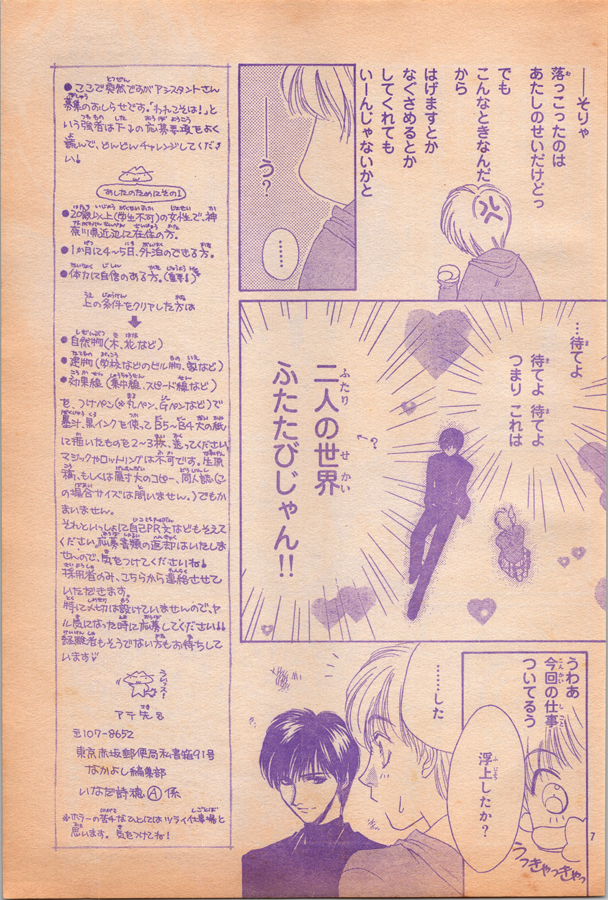 ──そりゃ
落っこったのは
あたしのせいだけどっ
でも
こんなときなんだ
から
はげますとか
なぐさめるとか
してくれても
いーんじゃないかと
──う?
……
…待てよ
待てよ 待てよ
つまり これは
二人の世界
ふたたびじゃん!!
?
うわあ
今回の仕事
ついてるう
うっきゃっきゃっ
……した
浮上したか?
7
●ここで突然ですがアシスタントさん
募集のおしらせです。「われこそは!」と
いう強者は下記の応募要項をよく
読んで、どんどんチャレンジしてくださ
い!
あしたのためにその1
●20歳以上(学生不可)の女性で、神
奈川県近辺に在住の方。
●1か月に4〜5日、外泊のできる方。
●体力に自信のある方。(重要!)
上の条件をクリヤした方は
●自然物(木、花など)
●建物(学校などのビル物、家など)
●効果線(集中線、スピード線など)
を、つけペン(丸ペン、Gペンなど)で
墨汁、黒インクを使ってB5〜B4大の紙
に描いたものを2〜3枚、送ってください。
マジックやロットリングは不可です。生原
稿、もしくは原寸大のコピー、同人誌(こ
の場合サイズは問いません。)でもか
まいません。
それといっしょに自己PR文などもそえて
ください。応募書類の返却はいたしま
せんので、気をつけてくださいね!
採用者のみ、こちらから連絡させて
いただきます。
特に〆切は設けていませんので、ヤ
ル気になった時に応募してください!!
経験者もそうでない方もお待ちして
います♡
アテ先は
〒107-8652
東京赤坂郵便局私書箱91号
なかよし編集部
いなだ詩穂Ⓐ係
※ホラーの苦手なひとにはツライ仕事場と
思います。気をつけてね!